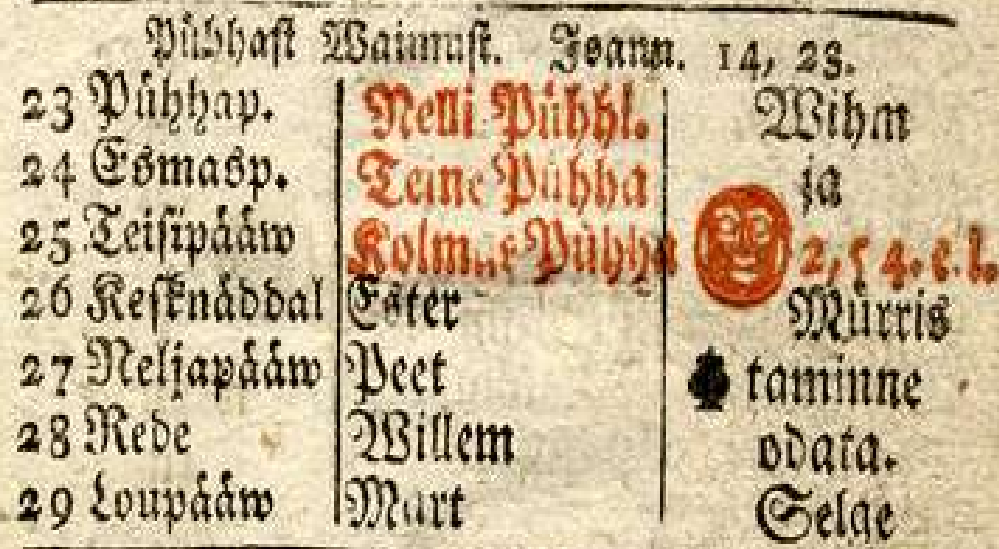 Pühhast Waimust. Joann. 14, 23.
23 Pühhap. Nelli Pühhl. Wihm
24 Esmasp. Teine Pühha ja
25 Teisipääw Kolmas Pühha 2, 54. e. l.
26 Kesknäddal Ester Mürris
27 Neljapääw Peet taminne
28 Rede Willem odata.
29 Loupääw Mart Selge